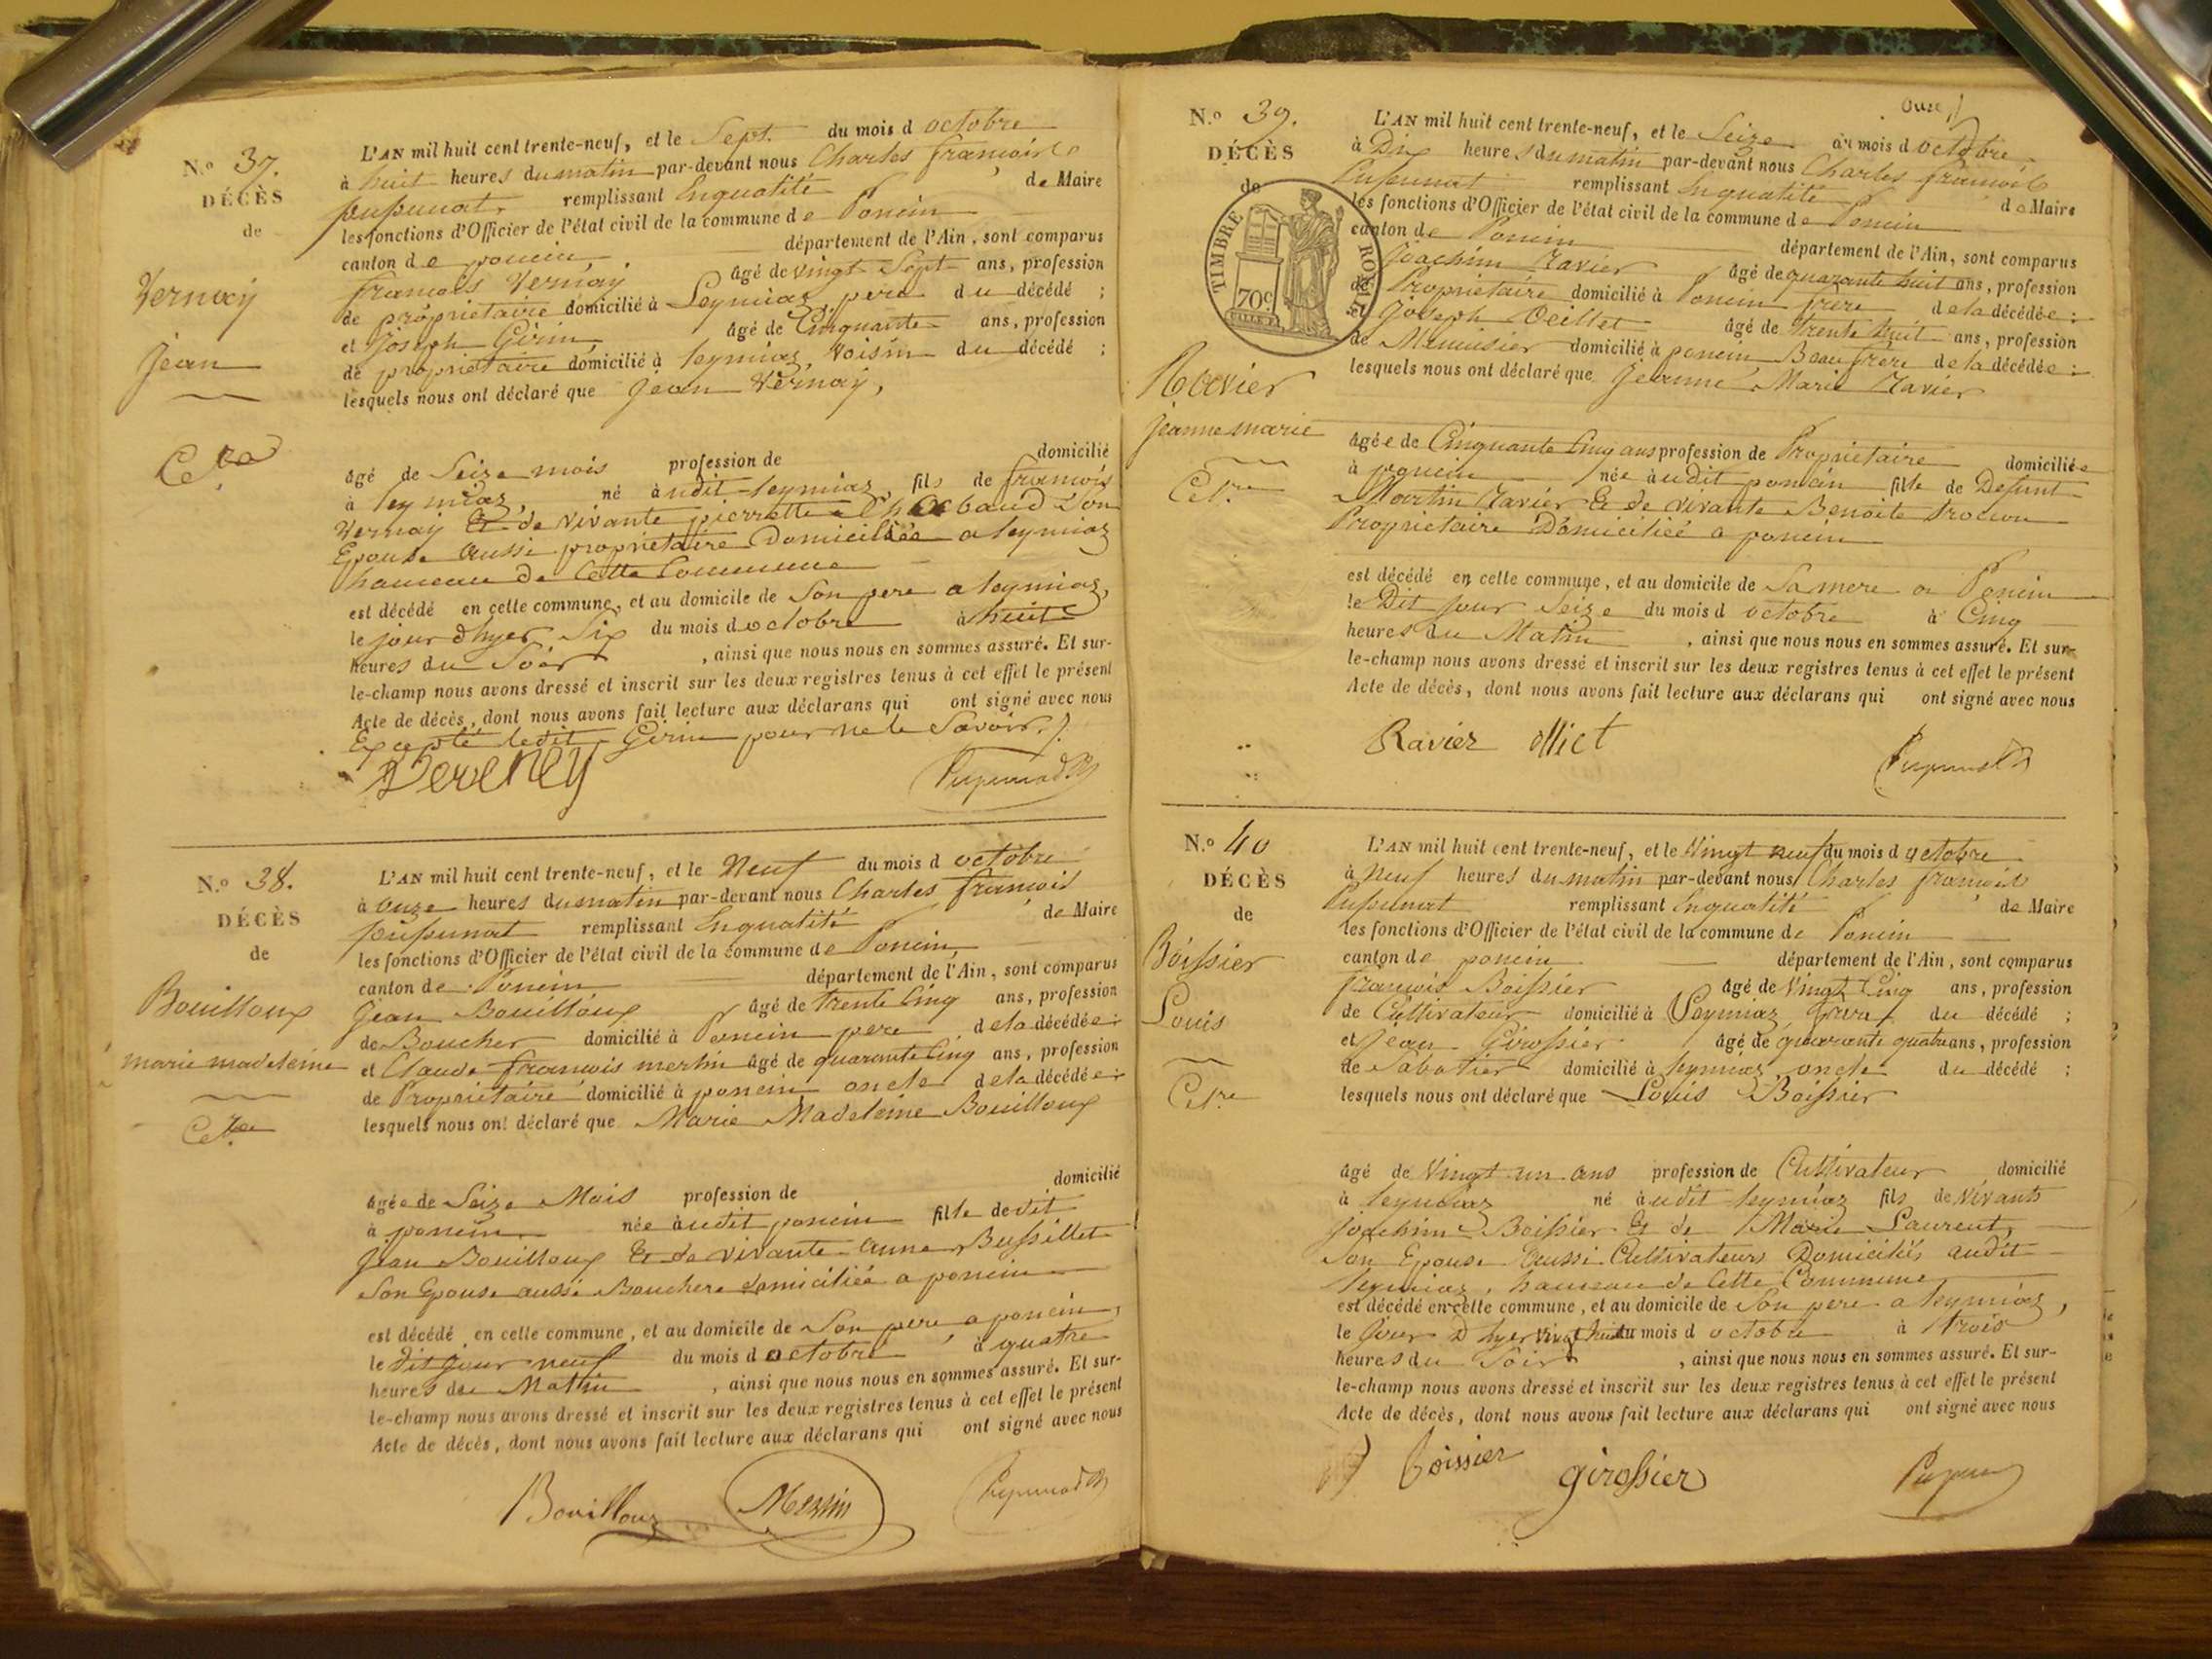 N.º 37.
DÉCÈS
de
Vernay
Jean
L'AN mil huit cent trente-neuf, et le Sept du mois d octobre
à huit heures du matin par-devant nous Charles françois
pupunat, remplissant Enqualité de Maire
les fonctions d'Officier de l'état civil de la commune de Poncin
canton de poncin département de l'Ain, sont comparus
francois Vernay âgé de vingt Sept ans, profession
de propriétaire domicilié à Leymiaz, pere du décédé ;
et Joseph Girin, âgé de Cinquante ans, profession
de propriétaire domicilié à leymiaz, Voisin du décédé ;
lesquels nous ont déclaré que Jean Vernay,
âgé de Seize mois profession de domicilié
à leymiaz, né àudit leymiaz, fils de francois
Vernay Et de vivante pierrette Son
Epouse aussi propriétaire Domiciliée a leymiaz
hameau de Cette Commune
est décédé en cette commune, et au domicile de Son pere a leymiaz,
le jour dhyer Six du mois d octobre à huit
heures du Soir , ainsi que nous nous en sommes assuré. Et sur-
le-champ nous avons dressé et inscrit sur les deux registres tenus à cet effet le présent
Acte de décès, dont nous avons fait lecture aux déclarans qui ont signé avec nous
Excepté ledit Girin pour ne le Savoir.
N.º 38.
DÉCÈS
de
Bouilloux
marie madeleine
L'AN mil huit cent trente-neuf, et le Neuf du mois d octobre
à onze heures du matin par-devant nous Charles francois
pupunat remplissant Enqualité de Maire
les fonctions d'Officier de l'état civil de la commune de Poncin
canton de Poncin département de l'Ain, sont comparus
Jean Bouilloux âgé de trente Cinq ans, profession
de Boucher domicilié à Poncin pere de la décédée ;
et Claude francois merlin âgé de quarante Cinq ans, profession
de Propriétaire domicilié à poncin, oncle de la décédée ;
lesquels nous ont déclaré que Marie Madeleine Bouilloux
âgée de Seize Mois profession de domicilié
à poncin née àudit poncin fille dedit
Jean Bouilloux Et de vivante anne Bussillet
Son Epouse aussi Bouchere domiciliée a poncin
est décédé en cette commune, et au domicile de Son pere a poncin,
le dit Jour neuf du mois d octobre à quatre
heures du Matin , ainsi que nous nous en sommes assuré. Et sur-
le-champ nous avons dressé et inscrit sur les deux registres tenus à cet effet le présent
Acte de décès, dont nous avons fait lecture aux déclarans qui ont signé avec nous
Bouilloux
N.º 39.
DÉCÈS
de
TIMBRE ROYAL
70c
Ravier
jeanne marie
L'AN mil huit cent trente-neuf, et le Seize du mois d octobre
à Dix heures du matin par-devant nous Charles francois
Pupunat remplissant Enqualité de Maire
les fonctions d'Officier de l'état civil de la commune de Poncin
canton de Poncin département de l'Ain, sont comparus
Joachim Ravier âgé de quarante huit ans, profession
de Propriétaire domicilié à Poncin frere de la décédée ;
et Joseph Oeillet âgé de trente huit ans, profession
de Menuisier domicilié à poncin Beau frere de la décédée ;
lesquels nous ont déclaré que Jeanne Marie Ravier
âgée de Cinquante Cinq ans profession de Propriétaire domiciliée
à poncin née àudit poncin fille de Defunt
Martin Ravier Et de vivante Benoite
Propriétaire Domiciliée a poncin
est décédé en cette commune, et au domicile de Sa mere a Poncin
le Dit jour Seize du mois d octobre à Cinq
heures du Matin , ainsi que nous nous en sommes assuré. Et sur-
le-champ nous avons dressé et inscrit sur les deux registres tenus à cet effet le présent
Acte de décès, dont nous avons fait lecture aux déclarans qui ont signé avec nous
Ravier
N.º 40
DÉCÈS
de
Boissier
Louis
L'AN mil huit cent trente-neuf, et le Vingt neuf du mois d octobre
à Neuf heures du matin par-devant nous Charles francois
Pupunat remplissant Enqualité de Maire
les fonctions d'Officier de l'état civil de la commune de Poncin
canton de poncin département de l'Ain, sont comparus
francois Boissier âgé de Vingt Cinq ans, profession
de Cultivateur domicilié à Leymiaz, frere du décédé ;
et Jean Girossier âgé de quarante quatre ans, profession
de Sabotier domicilié à leymiaz oncle du décédé ;
lesquels nous ont déclaré que Louis Boissier
âgé de Vingt un ans profession de Cultivateur domicilié
à leymiaz né àudit leymiaz fils de Vivants
Joachim Boissier Et de Marie Laurent,
Son Epouse aussi Cultivateurs Domiciliés audit
leymiaz, hameau de Cette Commune
est décédé en cette commune, et au domicile de Son pere a leymiaz,
le jour D'hyer vingt huit du mois d octobre à trois
heures du Soir , ainsi que nous nous en sommes assuré. Et sur-
le-champ nous avons dressé et inscrit sur les deux registres tenus à cet effet le présent
Acte de décès, dont nous avons fait lecture aux déclarans qui ont signé avec nous
Boissier girossier